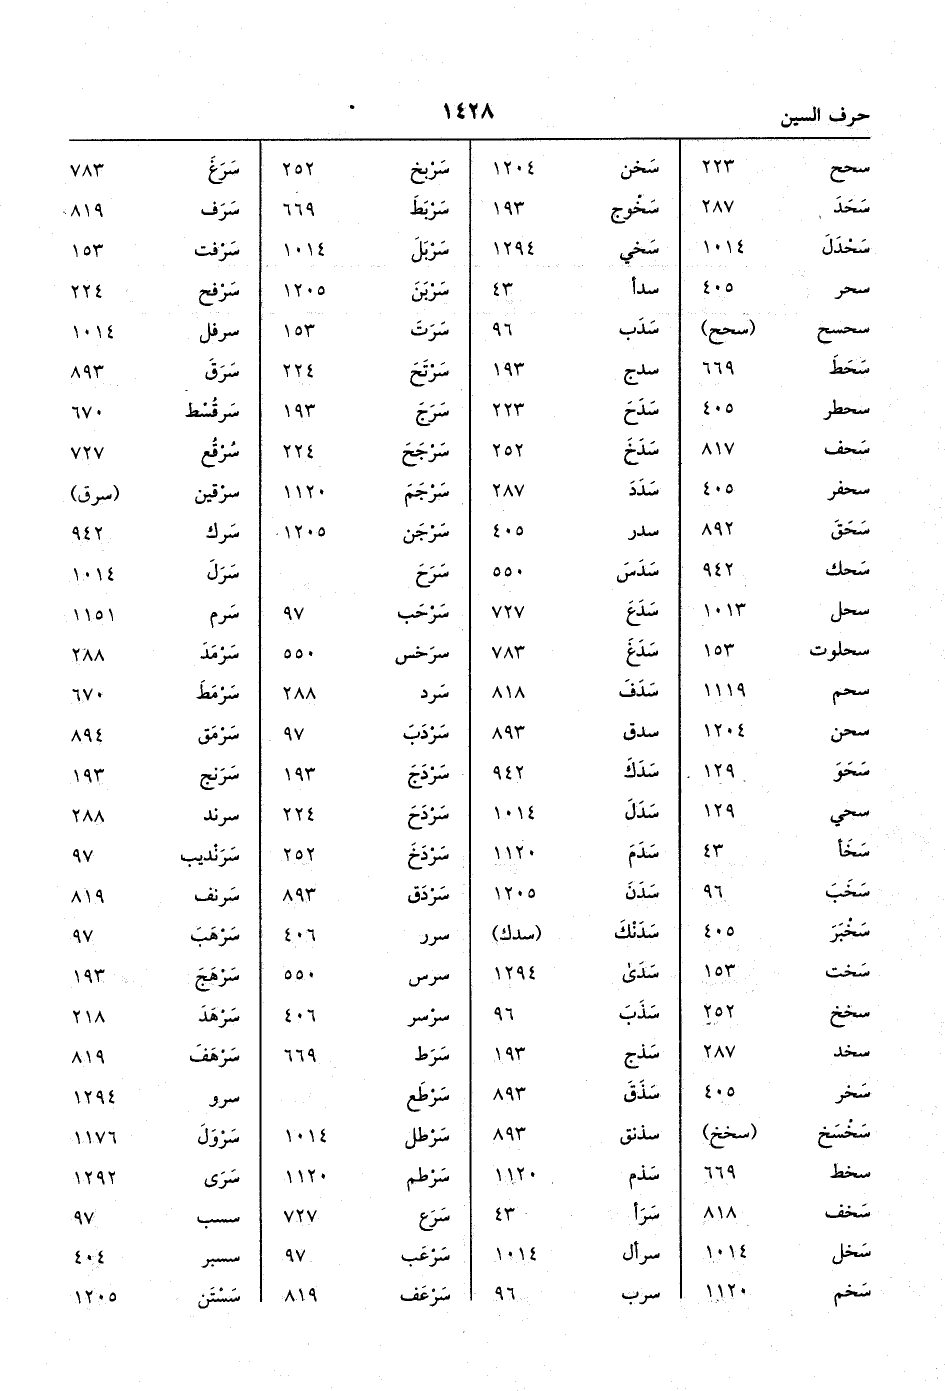 حرف السين ١٤٢٨
سحح ٢٢٣
سَحَدَ ٢٨٧
سَحْدَلَ ١٠١٤
سحر ٤٠٥
سحسح (سحح)
سَحَطَ ٦٦٩
سحطر ٤٠٥
سَحف ٨١٧
سحفر ٤٠٥
سَحَقَ ٨٩٢
سَحك ٩٤٢
سحل ١٠١٣
سحلوت ١٥٣
سحم ١١١٩
سحن ١٢٠٤
سَحَوَ ١٢٩
سحي ١٢٩
سَخَأ ٤٣
سَخَبَ ٩٦
سَخْبَرَ ٤٠٥
سَخت ١٥٣
سخخ ٢٥٢
سخد ٢٨٧
سَخر ٤٠٥
سَخْسَخ (سخخ)
سخط ٦٦٩
سَخف ٨١٨
سَخل ١٠١٤
سَخم ١١٢٠
سَخن ١٢٠٤
سَخْوج ١٩٣
سَخي ١٢٩٤
سدأ ٤٣
سَدَب ٩٦
سدج ١٩٣
سَدَحَ ٢٢٣
سَدَخَ ٢٥٢
سَدَدَ ٢٨٧
سدر ٤٠٥
سَدَسَ ٥٥٠
سَدَعَ ٧٢٧
سَدَغَ ٧٨٣
سَدَفَ ٨١٨
سدق ٨٩٣
سَدَكَ ٩٤٢
سَدَلَ ١٠١٤
سَدَمَ ١١٢٠
سَدَنَ ١٢٠٥
سَدَنْكَ (سدك)
سَدَىٰ ١٢٩٤
سَذَبَ ٩٦
سَذج ١٩٣
سَذَقَ ٨٩٣
سذنق ٨٩٣
سَذم ١١٢٠
سَرَأ ٤٣
سرأل ١٠١٤
سرب ٩٦
سَرْبخ ٢٥٢
سَرْبَطَ ٦٦٩
سَرْبَلَ ١٠١٤
سَرْبَنَ ١٢٠٥
سَرَتَ ١٥٣
سَرْتَحَ ٢٢٤
سَرَجَ ١٩٣
سَرْجَحَ ٢٢٤
سَرْجَمَ ١١٢٠
سَرْجَن ١٢٠٥
سَرَحَ
سَرْحَب ٩٧
سرَخس ٥٥٠
سَرد ٢٨٨
سَرْدَبَ ٩٧
سَرْدَجَ ١٩٣
سَرْدَحَ ٢٢٤
سَرْدَخَ ٢٥٢
سَرْدَق ٨٩٣
سرر ٤٠٦
سرس ٥٥٠
سرْسر ٤٠٦
سَرَط ٦٦٩
سَرْطَع
سَرْطل ١٠١٤
سَرْطم ١١٢٠
سَرَع ٧٢٧
سَرْعَب ٩٧
سَرْعَف ٨١٩
سَرَغَ ٧٨٣
سَرَف ٨١٩
سَرْفت ١٥٣
سَرْفح ٢٢٤
سرفل ١٠١٤
سَرَقَ ٨٩٣
سَرقُسْط ٦٧٠
سُرْقُع ٧٢٧
سرْقين (سرق)
سَرك ٩٤٢
سَرَلَ ١٠١٤
سَرم ١١٥١
سَرْمَدَ ٢٨٨
سَرْمَطَ ٦٧٠
سَرْمَق ٨٩٤
سَرَنج ١٩٣
سرند ٢٨٨
سَرَنْديب ٩٧
سَرنف ٨١٩
سَرْهَبَ ٩٧
سَرْهَجَ ١٩٣
سَرْهَدَ ٢١٨
سَرْهَفَ ٨١٩
سرو ١٢٩٤
سَرْوَلَ ١١٧٦
سَرَى ١٢٩٢
سسب ٩٧
سسبر ٤٠٤
سَسْتَن ١٢٠٥